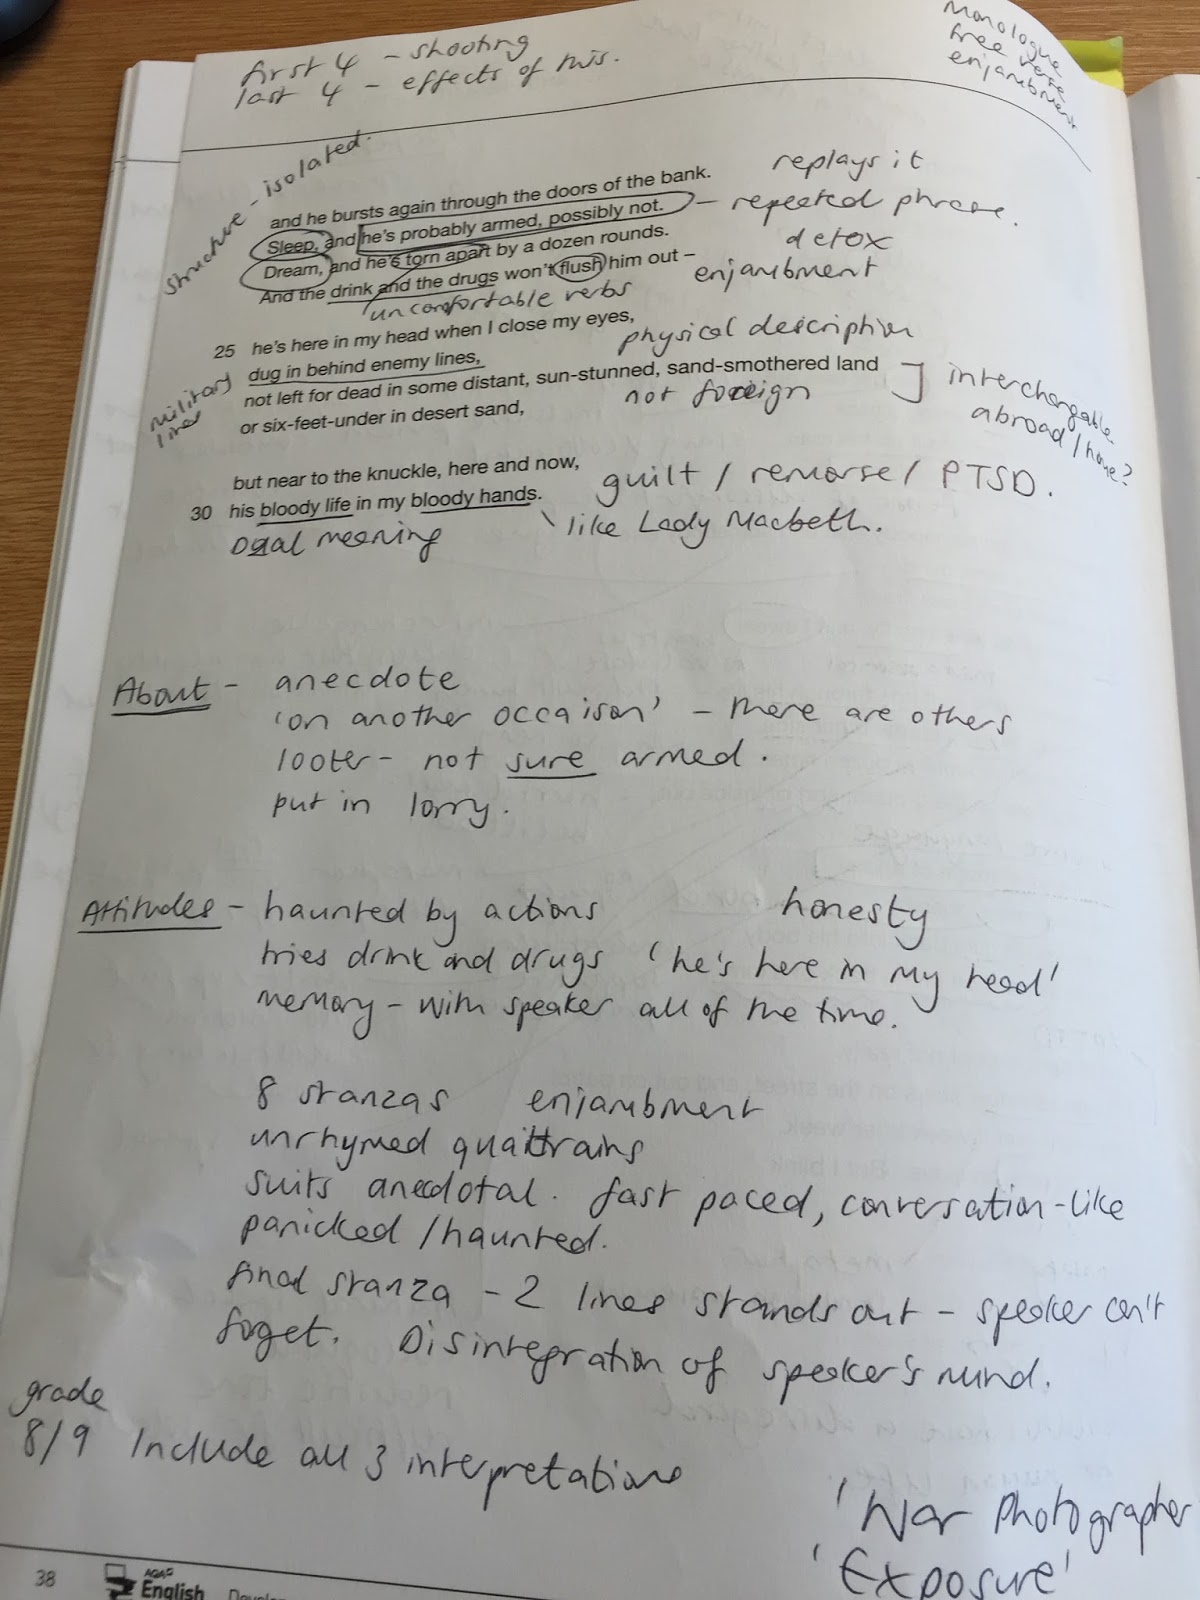 Monologue
free verse
enjambment
first 4 - shooting
last 4 - effects of this.
Structure - isolated.
and he bursts again through the doors of the bank.
replays it
Sleep, and he's probably armed, possibly not.
- repeated phrase.
Dream, and he's torn apart by a dozen rounds.
detox
And the drink and the drugs won't flush him out –
enjambment
uncomfortable verbs
25 he's here in my head when I close my eyes,
physical description
dug in behind enemy lines,
military lines
not left for dead in some distant, sun-stunned, sand-smothered land
not foreign
or six-feet-under in desert sand,
interchangable
abroad/home?
but near to the knuckle, here and now,
guilt / remorse / PTSD.
30 his bloody life in my bloody hands.
like Lady Macbeth.
Dual meaning
About - anecdote
'on another occaison' - there are others
looter - not sure armed.
put in lorry.
Attitudes - haunted by actions honesty
tries drink and drugs 'he's here in my head'
memory - with speaker all of the time.
8 stanzas enjambment
unrhymed quattrains
suits anecdotal. fast paced, conversation-like
panicked / haunted.
final stanza - 2 lines stands out - speaker can't
forget. Disintegration of speaker's mind.
grade
8/9 Include all 3 interpretations
'War Photographer
'Exposure'
38 AQA
English